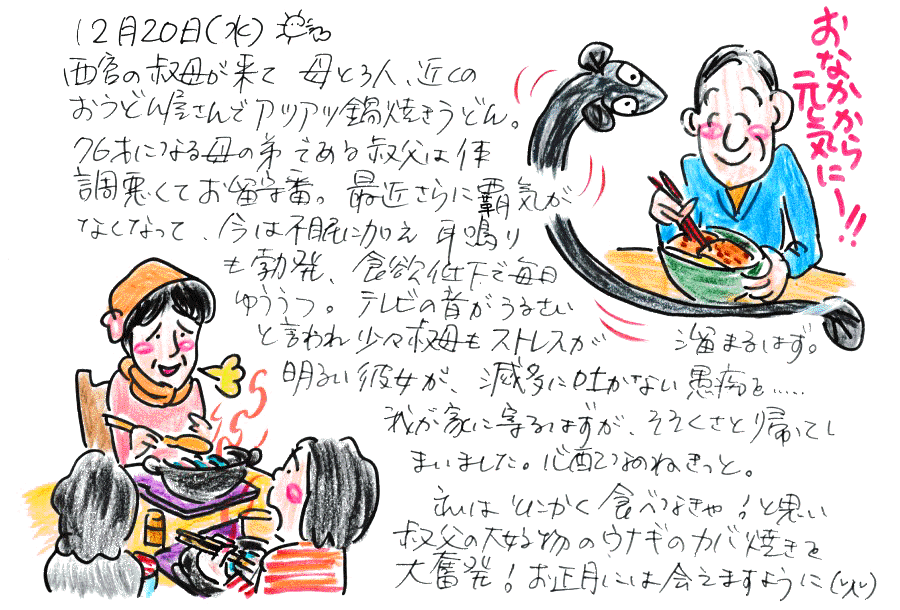 12月20日(水)
西宮の叔母が来て 母と3人、近くの
おうどん屋さんでアツアツ鍋焼きうどん。
76才になる母の弟である叔父は体
調悪くてお留守番。最近さらに覇気が
なくなって、今は不眠に加え 耳鳴り
も勃発、食欲低下で毎日
ゆううつ。テレビの音がうるさい
と言われ 少々叔母もストレスが 溜まるはず。
明るい彼女が、滅多に吐かない愚痴を‥‥‥
我が家に寄るはずが、そそくさと帰ってし
まいました。心配なのねきっと。
それはとにかく食べなきゃ!と思い
叔父の大好物のウナギのカバ焼きを
大奮発!お正月には会えますように(い)
おなかから
元気にー!!